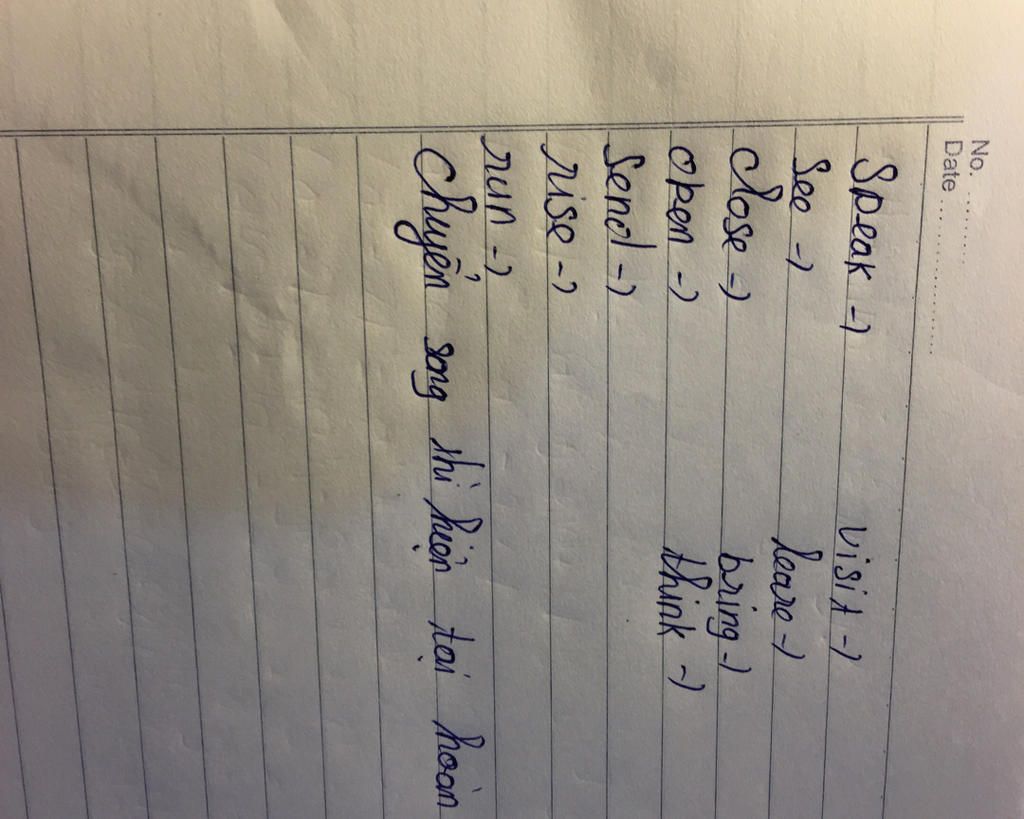 No. ............
Date ..................
Speak -) visit -)
See -) leave -)
close -) bring -)
open -) think -)
Send -)
rise -)
run -)
Chuyển song thì hiện tại hoàn